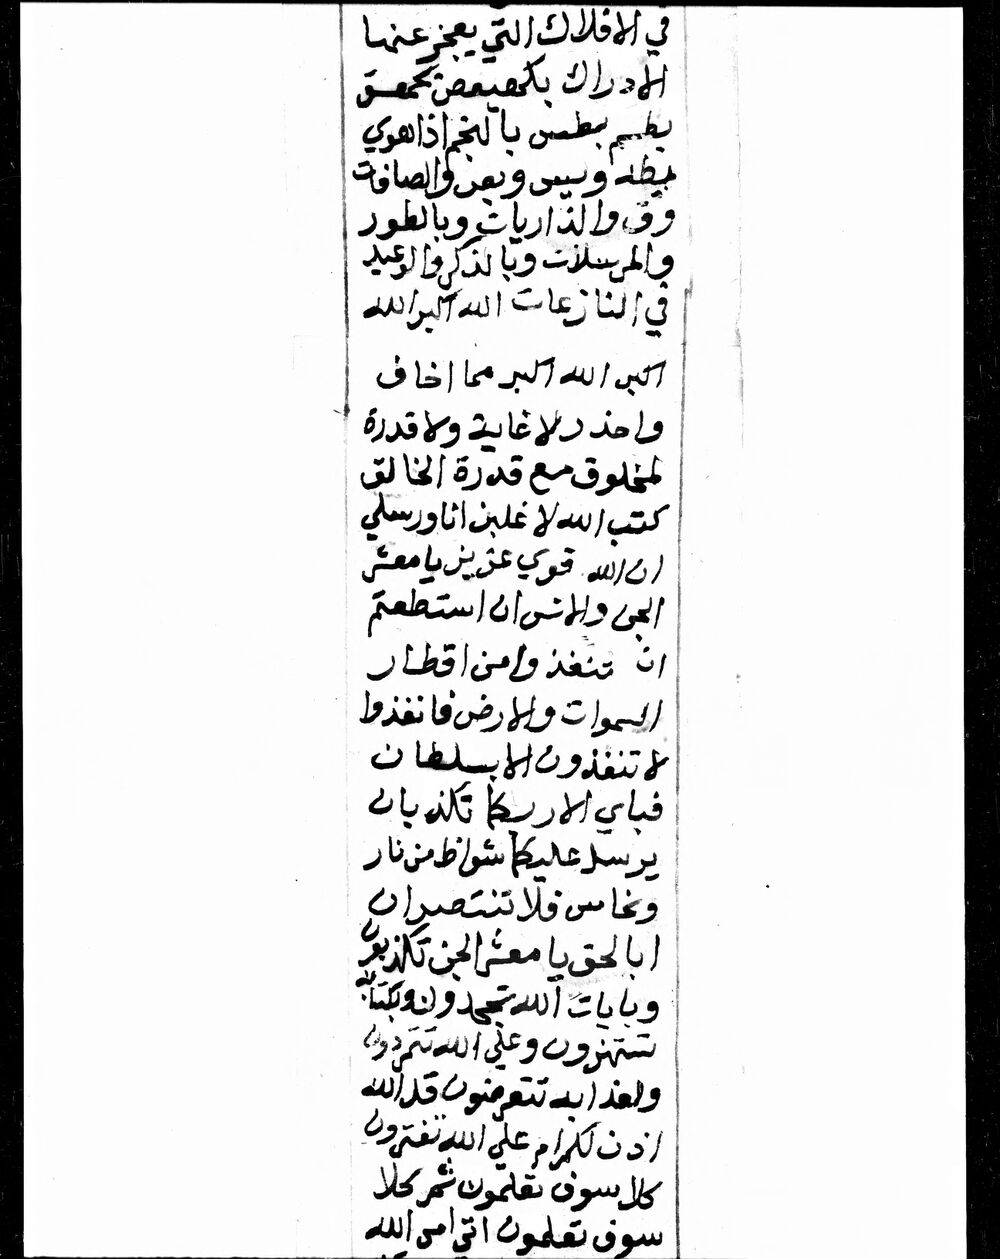 في الافلاك التي يعجز عنها
الادراك بكهيعص بحمعسق
بطسم بطس بالنجم اذا هوي
بطه ويس وبص والصافات
وق والذاريات وبالطور
والمرسلات وبالذكر والوعيد
في النازعات الله اكبر الله
اكبر الله اكبر مما اخاف
واحذر لا غاية ولا قدرة
لمخلوق مع قدرة الخالق
كتب الله لاغلبن انا ورسلي
ان الله قوي عزيز يا معشر
الجن والانس ان استطعتم
ان تنفذوا من اقطار
السموات والارض فانفذوا
لا تنفذون الا بسلطان
فباي الا ربكما تكذبان
يرسل عليكما شواظ من نار
ونحاس فلا تنتصران
ابالحق يا معشر الجن تكذبون
وبايات الله تجحدون وبكتابه
تستهزون وعلي الله تتمردون
ولعذابه تتعرضون قل الله
اذن لكم ام علي الله تفترون
كلا سوف تعلمون ثم كلا
سوف تعلمون اتي امر الله